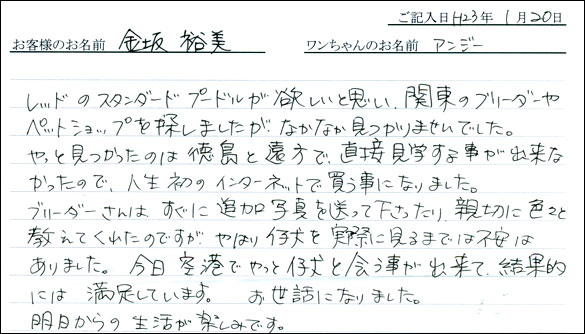 ご記入日 H23年 1月20日
お客様のお名前 金坂 裕美 ワンちゃんのお名前 アンジー
レッドのスタンダードプードルが欲しいと思い、関東のブリーダーや
ペットショップを探しましたが、なかなか見つかりませんでした。
やっと見つかったのは徳島と遠方で、直接見学する事が出来な
かったので、人生初のインターネットで買う事になりました。
ブリーダーさんは、すぐに追加写真を送って下さったり、親切に色々と
教えてくれたのですが、やはり仔犬を実際に見るまでは不安は
ありました。今日空港でやっと仔犬と会う事が出来て、結果的
には満足しています。 お世話になりました。
明日からの生活が楽しみです。